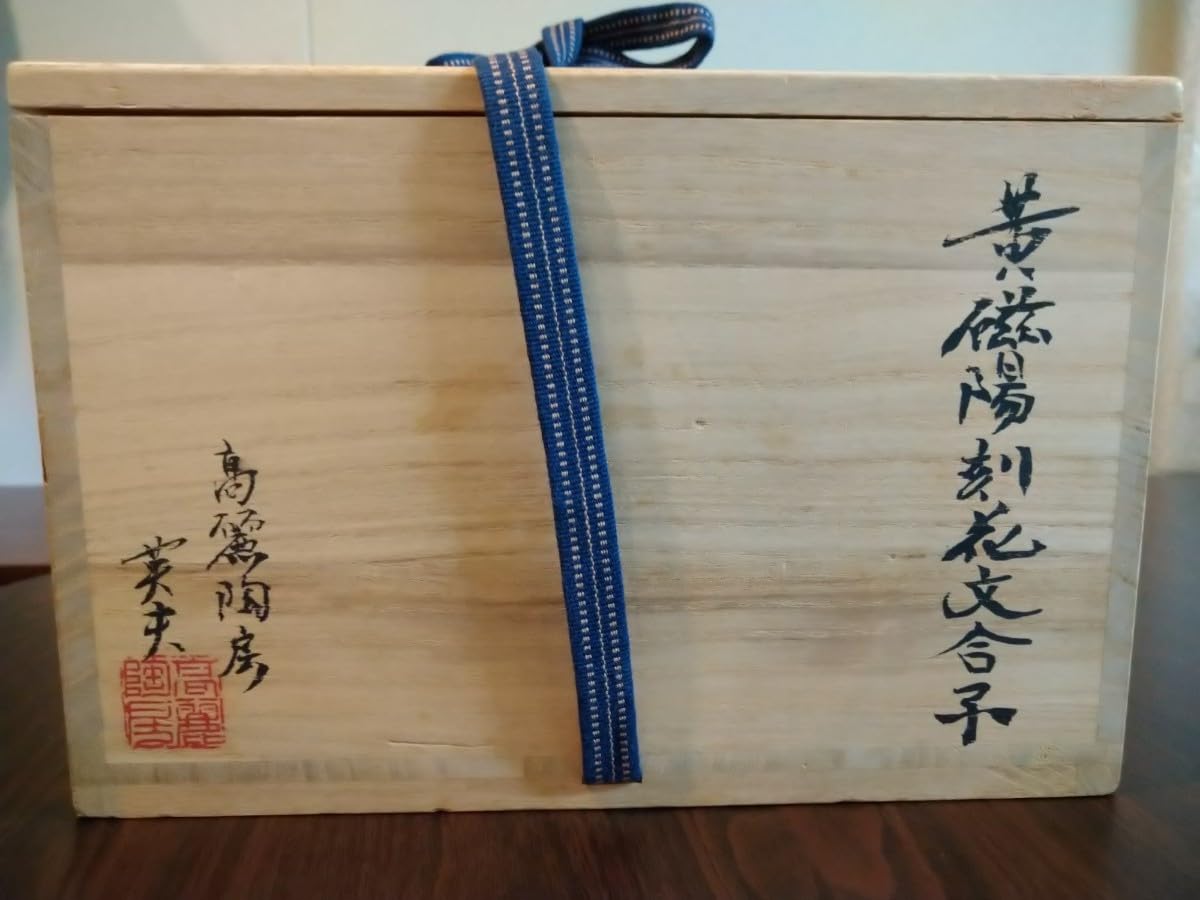 黄磁陽刻花文合子
高麗陶房
英夫
高麗
陶房